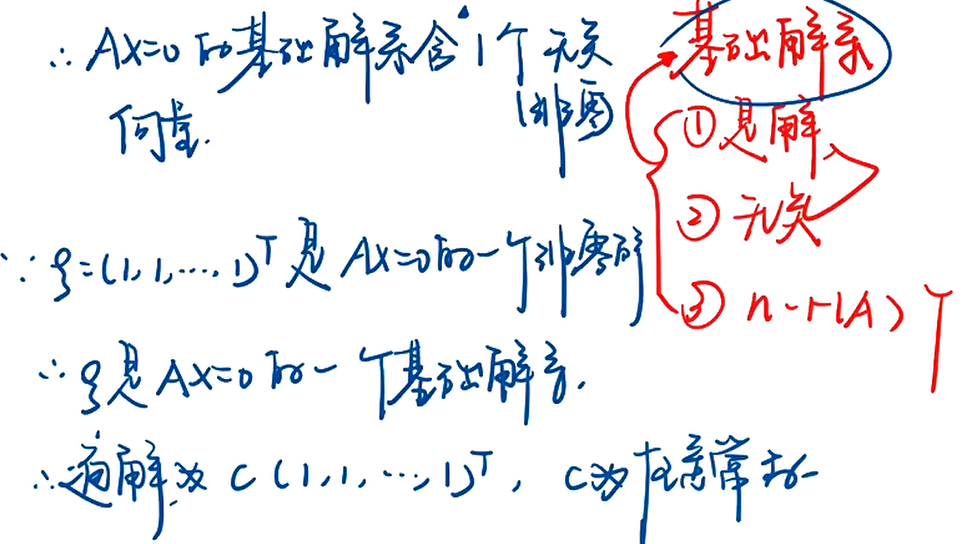 ∴ AX=0 的基础解系含 1 个 无关
(非零
向量.
∵ ξ=(1,1,…,1)ᵀ 是 AX=0 的一个非零解
∴ ξ是 AX=0 的一个基础解系.
∴ 通解为 C(1,1,…,1)ᵀ, C为任意常数
基础解系
① 是解
② 无关
③ n-r(A) 个